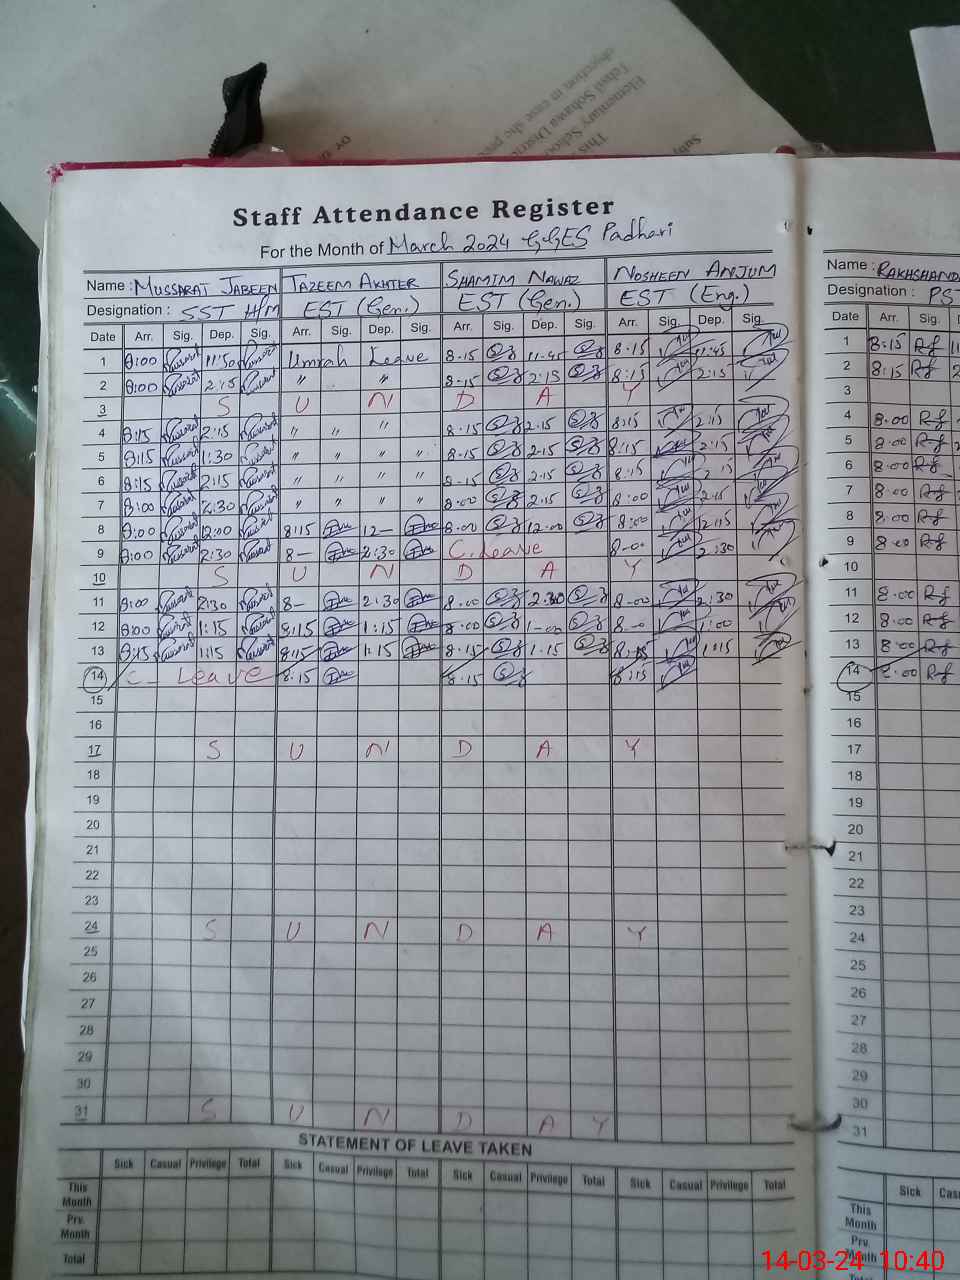 Staff Attendance Register
For the Month of March 2024 GGES Padhari
Name : MUSSARAT JABEEN TAZEEM AKHTER SHAMIM NAWAZ NOSHEEN ANJUM
Designation : SST H/M EST (Gen.) EST (Gen.) EST (Eng.)
Date Arr. Sig. Dep. Sig. Arr. Sig. Dep. Sig. Arr. Sig. Dep. Sig. Arr. Sig. Dep. Sig.
1 8:00 11:50 Umrah Leave 8-15 11-45 8-15 11:45
2 8:00 2:15 " " 8-15 2:15 8:15 2:15
3 S U N D A Y
4 8:15 2:15 " " 8-15 2-15 8:15 2:15
5 8:15 1:30 " " " " 8-15 2-15 8:15 2:15
6 8:15 2:15 " " " " 8-15 2.15 8:15 2:15
7 8:00 2:30 " " " " 8-00 2.15 8:00 2:15
8 8:00 12:00 8:15 12- 8-00 12-00 8:00 12:15
9 8:00 2:30 8- 2:30 C.Leave 8-00 2:30
10 S U N D A Y
11 8:00 2:30 8- 2:30 8-00 2.30 8-00 2:30
12 8:00 1:15 8:15 1:15 8-00 1-00 8-0 1:00
13 8:15 1:15 8:15 1:15 8-15 1-15 8:15 1:15
14 C- Leave 8:15 8-15 8:15
15
16
17 S U N D A Y
18
19
20
21
22
23
24 S U N D A Y
25
26
27
28
29
30
31 S U N D A Y
STATEMENT OF LEAVE TAKEN
Sick Casual Privilege Total Sick Casual Privilege Total Sick Casual Privilege Total Sick Casual Privilege Total
This Month
Prv. Month
Total
Name : RAKHSHAND
Designation : PST
Date Arr. Sig.
1 8:15
2 8:15
3
4 8.00
5 8-00
6 8-00
7 8-00
8 8-00
9 8-00
10
11 8-00
12 8-00
13 8-00
14 8-00
15
16
17
18
19
20
21
22
23
24
25
26
27
28
29
30
31
Sick Cas
This Month
Prv. Month
14-03-24 10:40